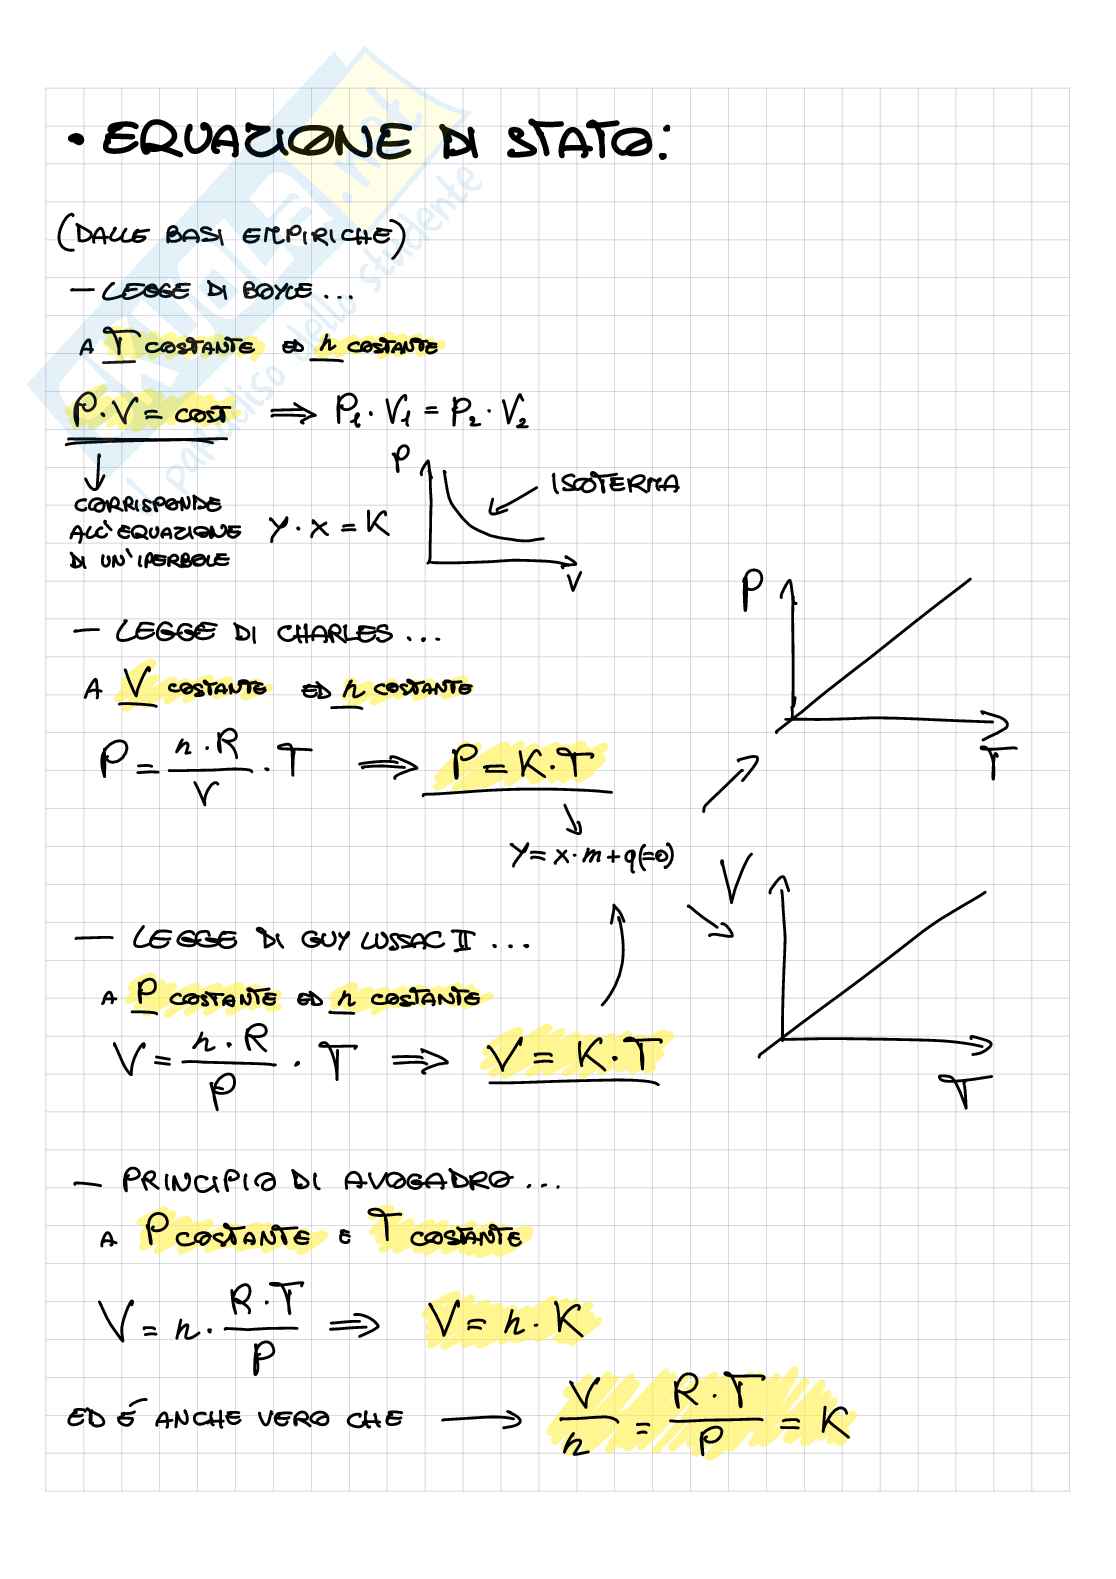 • EQUAZIONE DI STATO:
(DALLE BASI EMPIRICHE)
— LEGGE DI BOYLE ...
A T COSTANTE ED n COSTANTE
P · V = COST ⟹ P₁ · V₁ = P₂ · V₂
P
ISOTERMA
CORRISPONDE
ALL'EQUAZIONE Y · X = K
DI UN'IPERBOLE
V
P
— LEGGE DI CHARLES ...
A V COSTANTE ED n COSTANTE
P = n · R / V · T ⟹ P = K · T
T
Y = X · m + q (=0)
V
— LEGGE DI GUY LUSSAC II ...
A P COSTANTE ED n COSTANTE
V = n · R / P · T ⟹ V = K · T
T
— PRINCIPIO DI AVOGADRO ...
A P COSTANTE E T COSTANTE
V = n · R · T / P ⟹ V = n · K
ED É ANCHE VERO CHE ⟶ V / n = R · T / P = K
SKUOLA.net
il paradiso dello studente